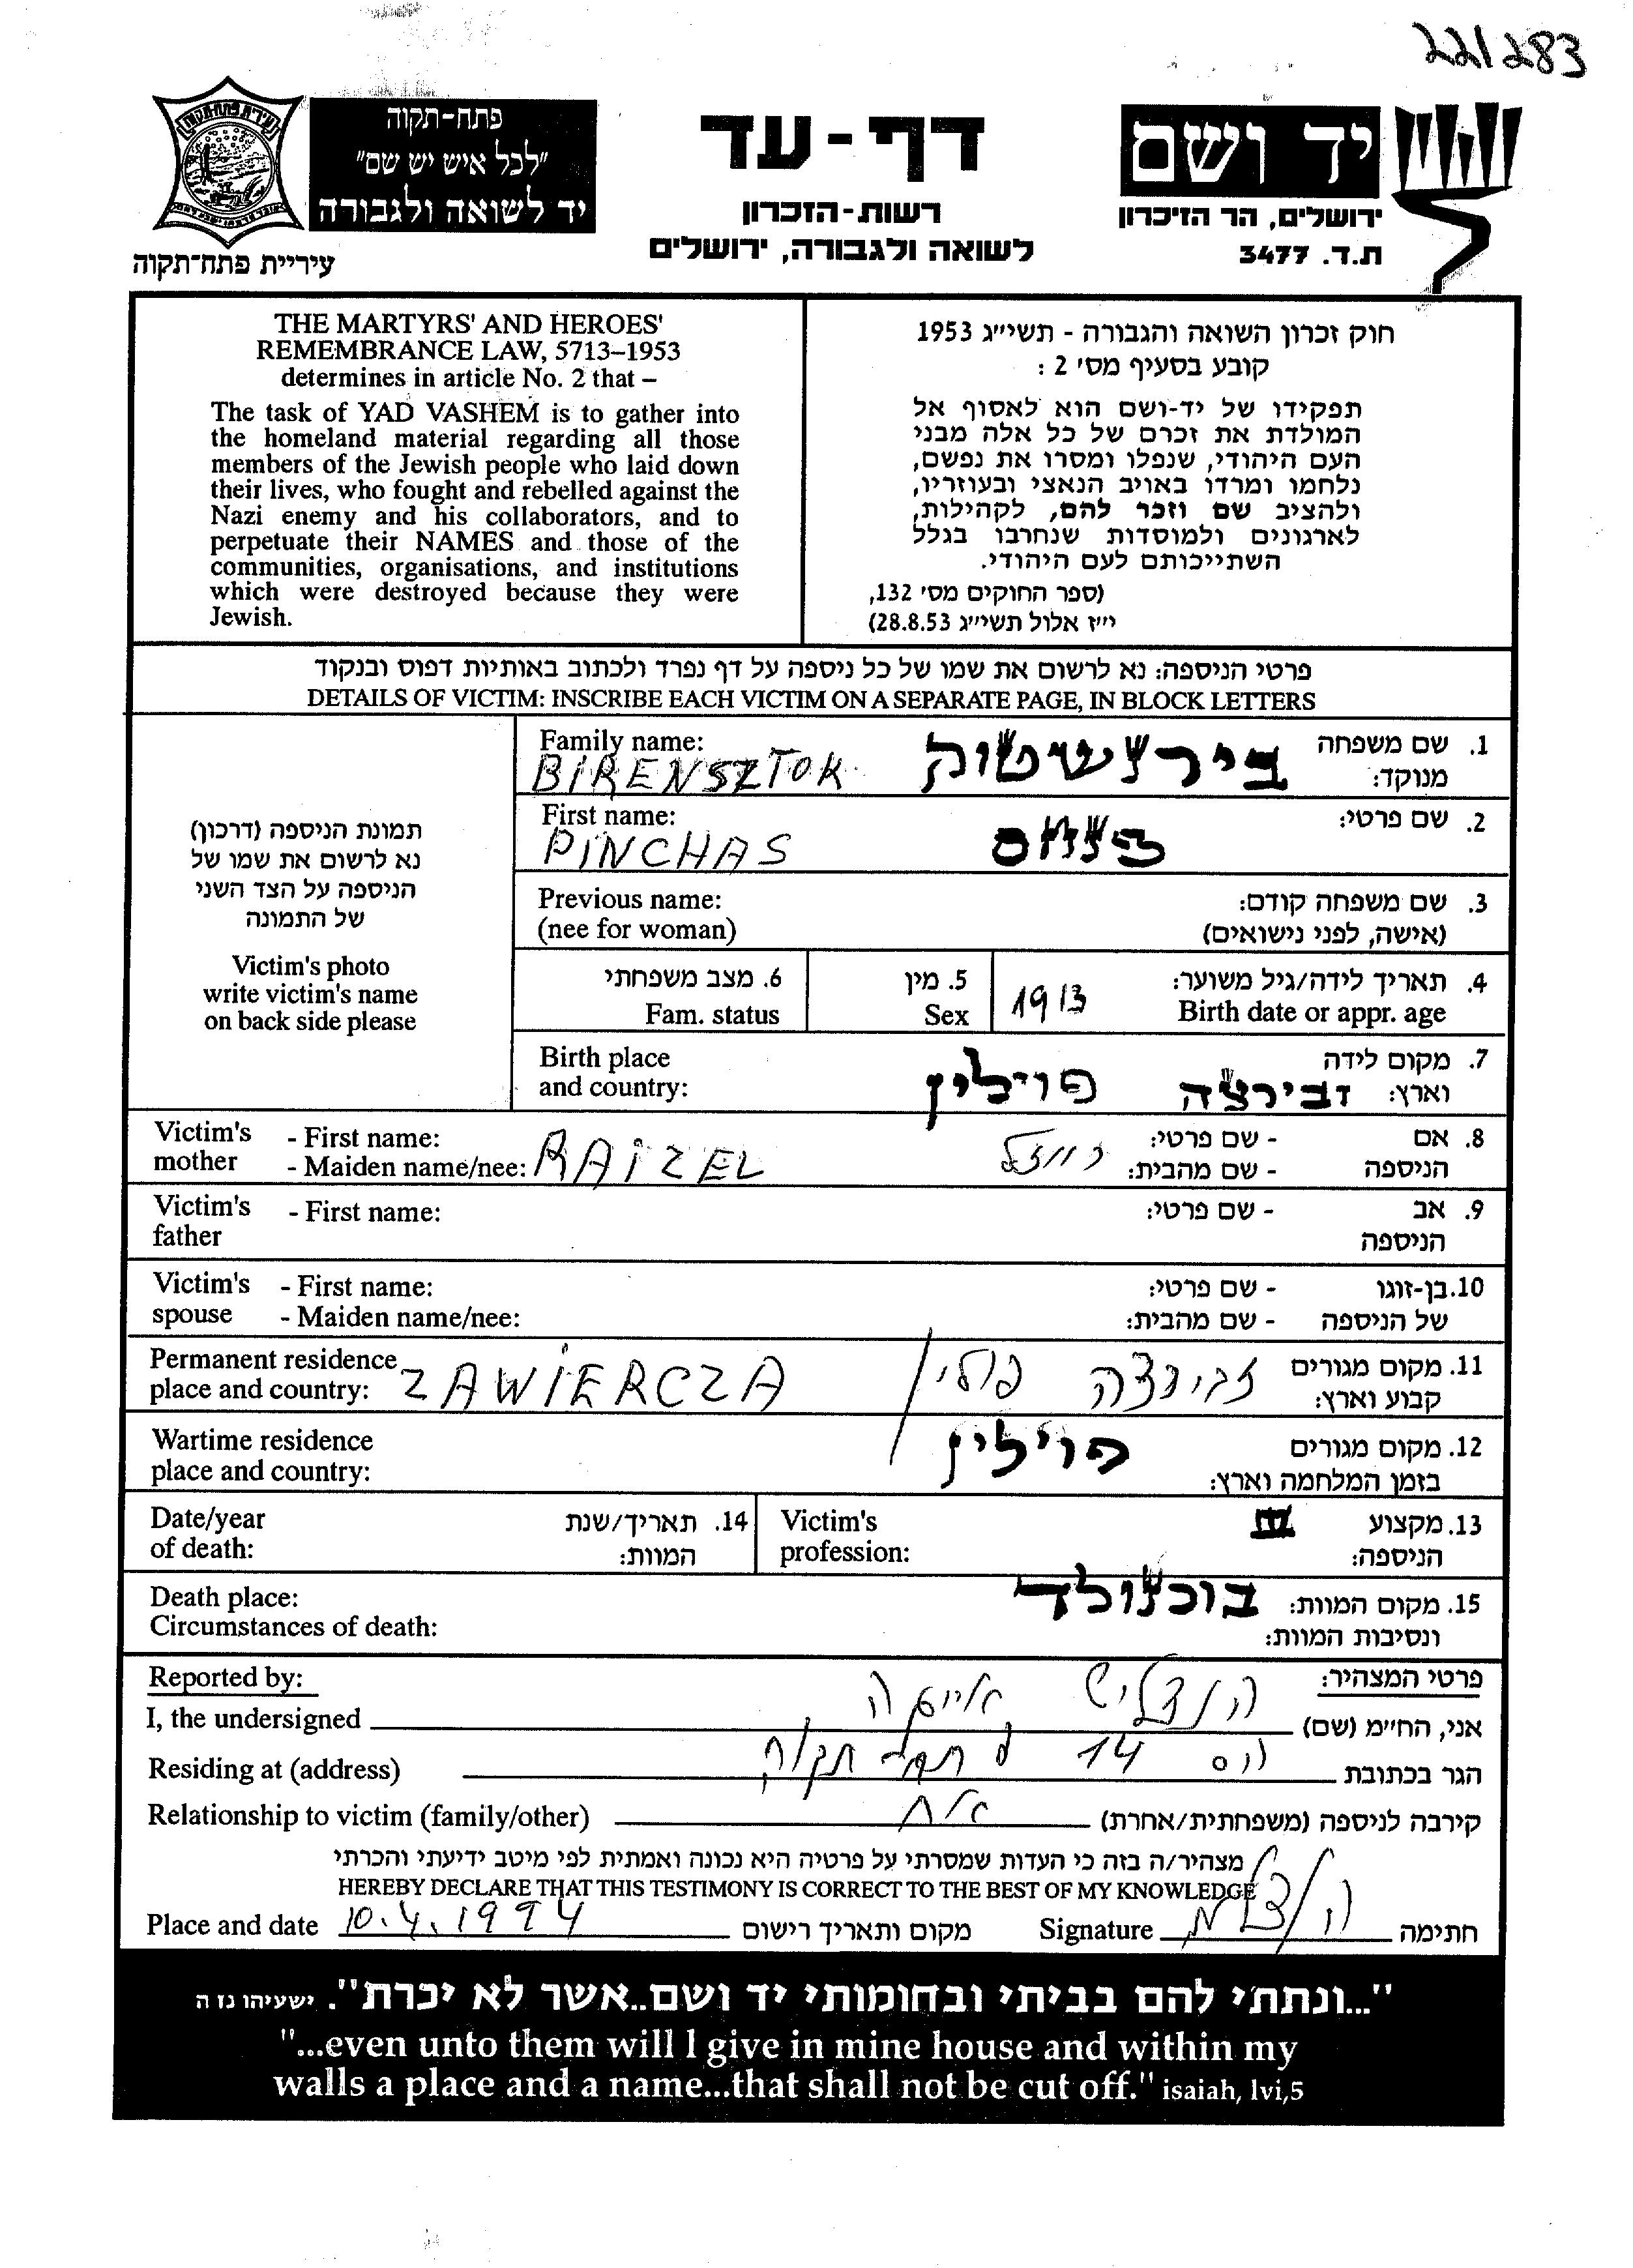 221283
פתח-תקוה
"לכל איש יש שם"
יד לשואה ולגבורה
עיריית פתח־תקוה
דף-עד
רשות-הזכרון
לשואה ולגבורה, ירושלים
יד ושם
ירושלים, הר הזיכרון
ת.ד. 3477
THE MARTYRS' AND HEROES'
REMEMBRANCE LAW, 5713–1953
determines in article No. 2 that –
The task of YAD VASHEM is to gather into
the homeland material regarding all those
members of the Jewish people who laid down
their lives, who fought and rebelled against the
Nazi enemy and his collaborators, and to
perpetuate their NAMES and those of the
communities, organisations, and institutions
which were destroyed because they were
Jewish.
חוק זכרון השואה והגבורה - תשי״ג 1953
קובע בסעיף מס' 2 :
תפקידו של יד-ושם הוא לאסוף אל
המולדת את זכרם של כל אלה מבני
העם היהודי, שנפלו ומסרו את נפשם,
נלחמו ומרדו באויב הנאצי ובעוזריו,
ולהציב שם וזכר להם, לקהילות,
לארגונים ולמוסדות שנחרבו בגלל
השתייכותם לעם היהודי.
(ספר החוקים מס' 132,
י״ז אלול תשי״ג 28.8.53)
פרטי הניספה: נא לרשום את שמו של כל ניספה על דף נפרד ולכתוב באותיות דפוס ובנקוד
DETAILS OF VICTIM: INSCRIBE EACH VICTIM ON A SEPARATE PAGE, IN BLOCK LETTERS
תמונת הניספה (דרכון)
נא לרשום את שמו של
הניספה על הצד השני
של התמונה
Victim's photo
write victim's name
on back side please
Family name:
BIRENSZTOK
בירנשטוק
1. שם משפחה
מנוקד:
First name:
PINCHAS
פנחס
2. שם פרטי:
Previous name:
(nee for woman)
3. שם משפחה קודם:
(אישה, לפני נישואים)
4. תאריך לידה/גיל משוער:
Birth date or appr. age
1913
5. מין
Sex
6. מצב משפחתי
Fam. status
Birth place
and country:
7. מקום לידה
וארץ: זבירצה פוילין
Victim's mother - First name:
- Maiden name/nee: RAIZEL
8. אם הניספה - שם פרטי:
- שם מהבית: רייזל
Victim's father - First name:
9. אב הניספה - שם פרטי:
Victim's spouse - First name:
- Maiden name/nee:
10. בן-זוגו של הניספה - שם פרטי:
- שם מהבית:
Permanent residence
place and country: ZAWIERCZA
11. מקום מגורים
קבוע וארץ: זבירצה פולין
Wartime residence
place and country:
12. מקום מגורים
בזמן המלחמה וארץ: פוילין
Date/year
of death:
14. תאריך/שנת
המוות:
Victim's
profession:
13. מקצוע
הניספה:
Death place:
Circumstances of death:
15. מקום המוות: בוכנולד
ונסיבות המוות:
Reported by:
פרטי המצהיר:
I, the undersigned
אני, החי״מ (שם)
Residing at (address)
הגר בכתובת 14 פתח תקוה
Relationship to victim (family/other)
קירבה לניספה (משפחתית/אחרת)
מצהיר/ה בזה כי העדות שמסרתי על פרטיה היא נכונה ואמתית לפי מיטב ידיעתי והכרתי
HEREBY DECLARE THAT THIS TESTIMONY IS CORRECT TO THE BEST OF MY KNOWLEDGE
Place and date 10.4.1994 מקום ותאריך רישום
Signature חתימה
"...ונתתי להם בביתי ובחומותי יד ושם..אשר לא יכרת". ישעיהו נז ה
"...even unto them will I give in mine house and within my
walls a place and a name...that shall not be cut off." isaiah, lvi,5